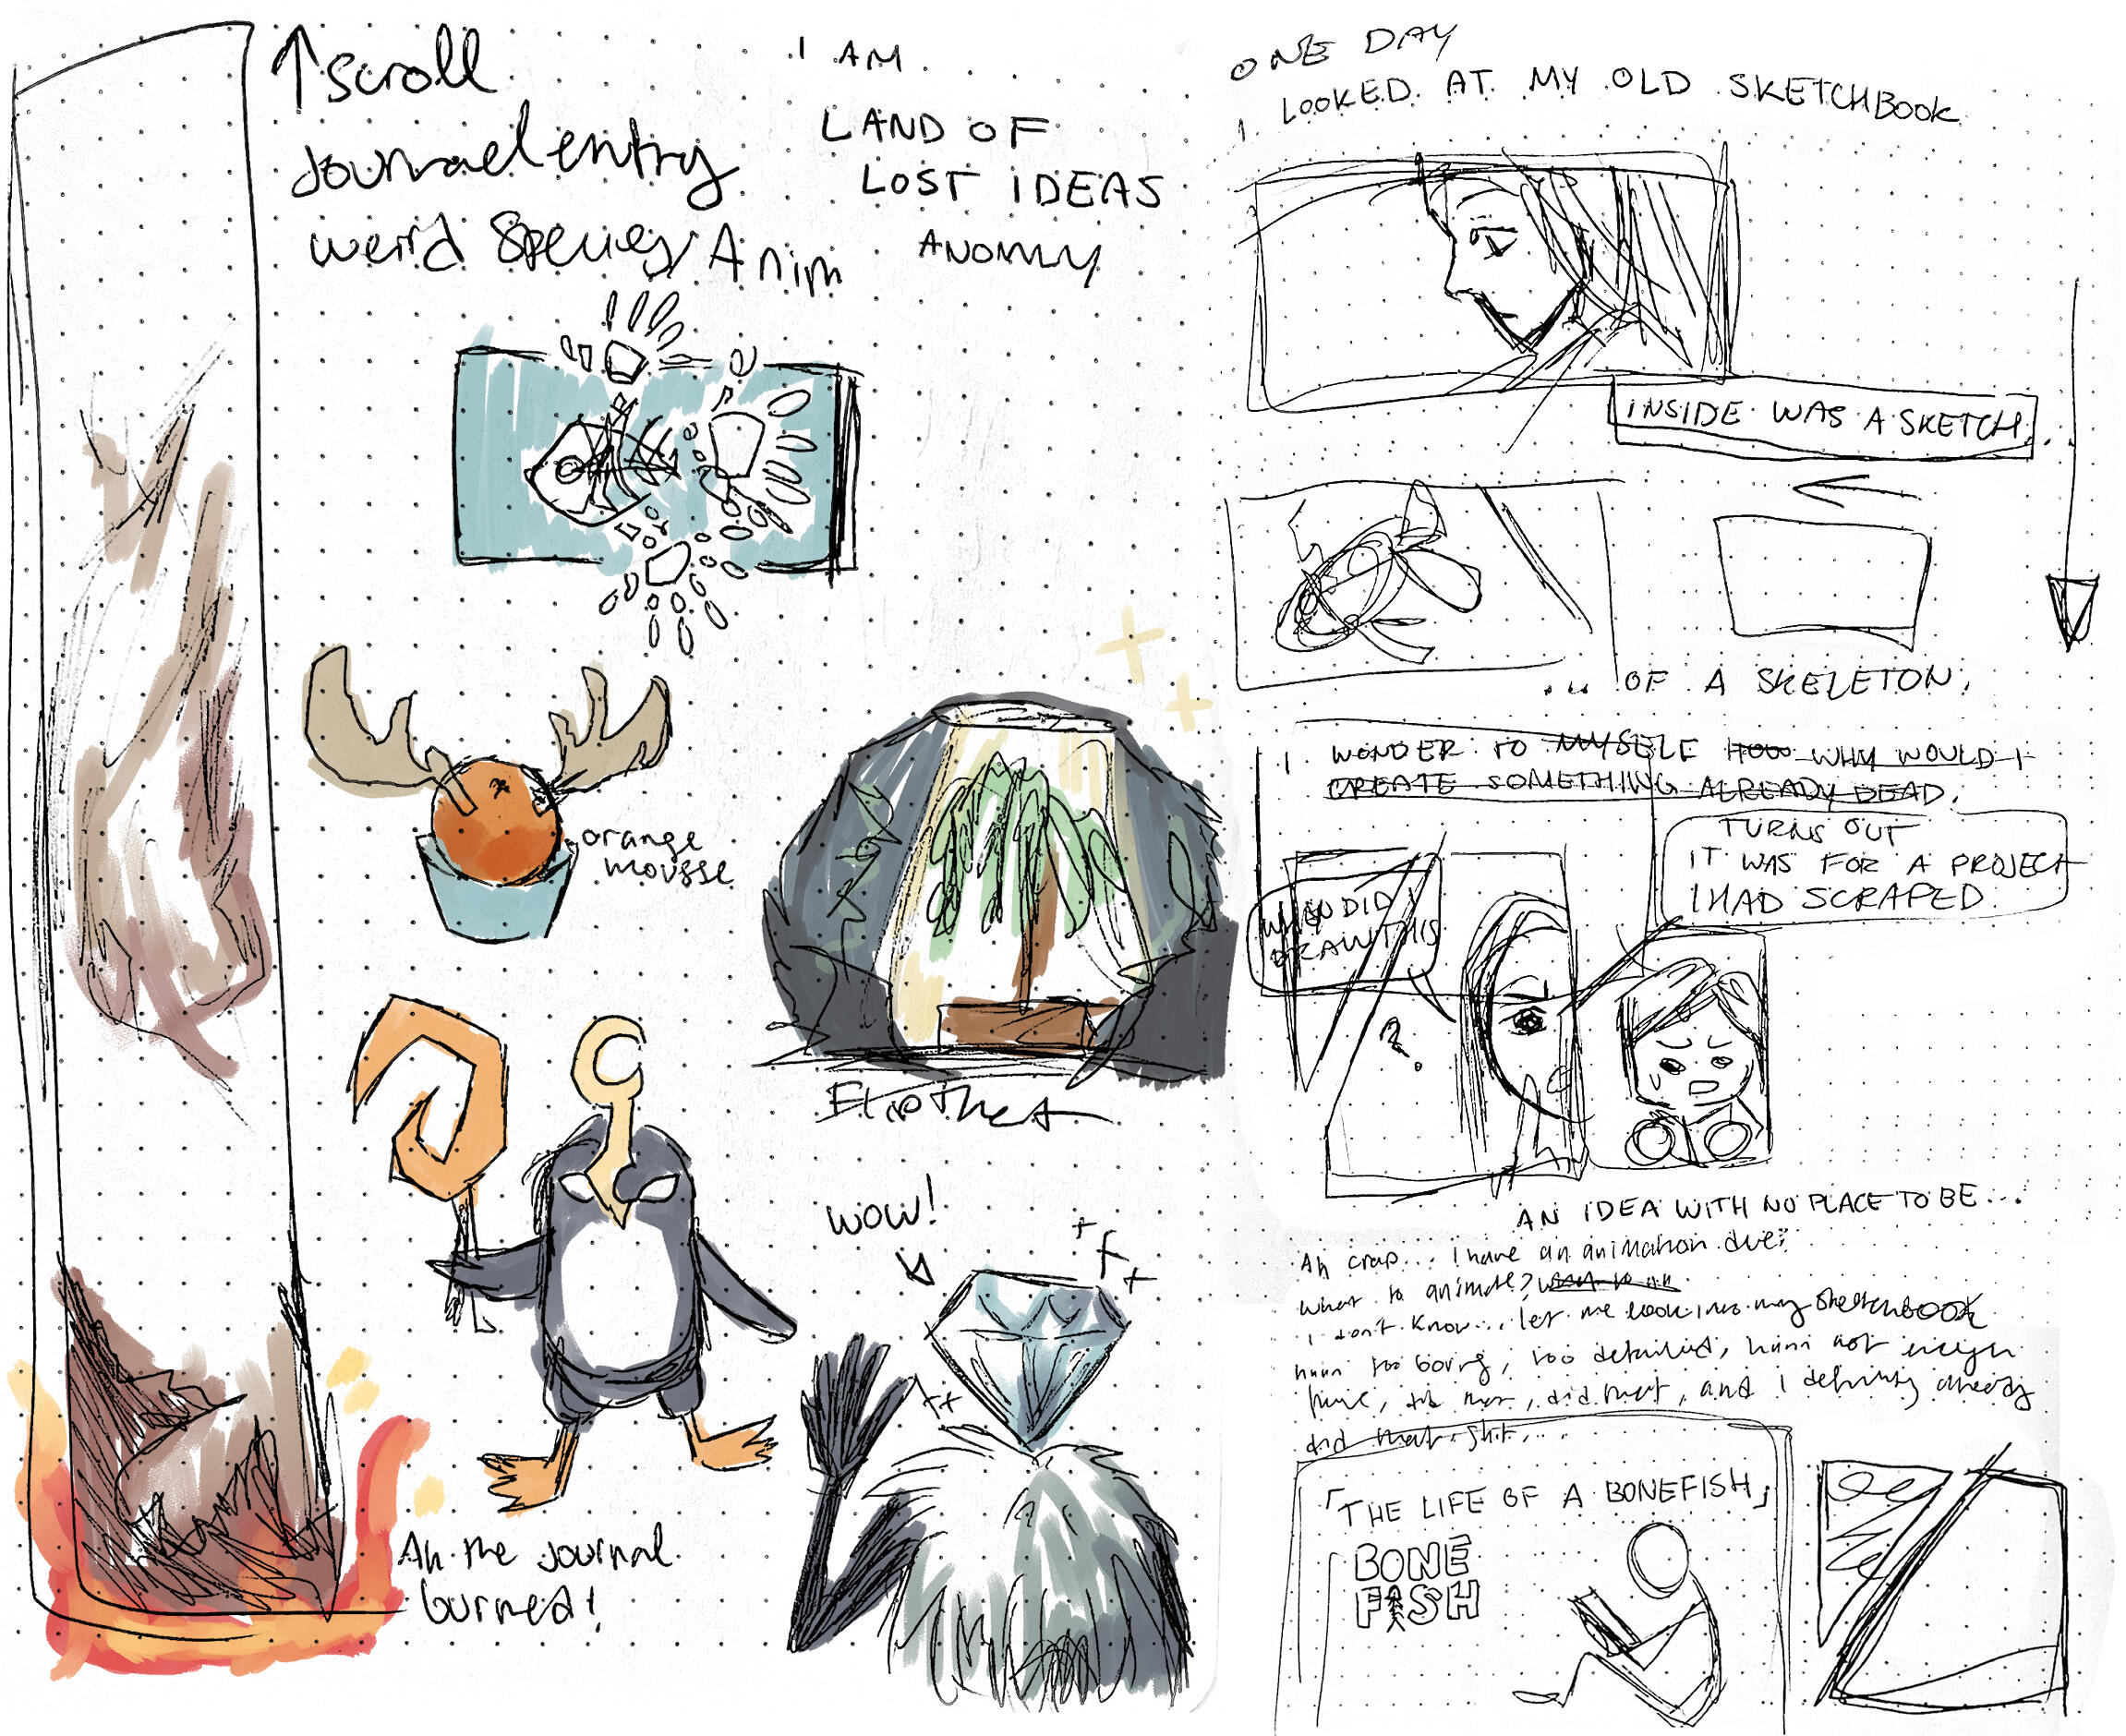 ↑ scroll
Journael entry
weird Species Anim
I AM
LAND OF
LOST IDEAS
orange
mousse
WOW!
Ah the journal
burned!
ONE DAY
I LOOKED AT MY OLD SKETCHBOOK
INSIDE WAS A SKETCH
... OF A SKELETON.
I WONDER TO MYSELF HOW WHY WOULD I
CREATE SOMETHING ALREADY DEAD.
TURNS OUT
IT WAS FOR A PROJECT
I HAD SCRAPED
DID I
DRAW THIS
?
AN IDEA WITH NO PLACE TO BE...
Ah crap... I have an animation due?
what to animate?
I don't know... let me look into my sketchbook
hmm too boring, too detailed, hmm not enough
did that, and I definitly already
did that shit...
「THE LIFE OF A BONEFISH」
BONE
FISH